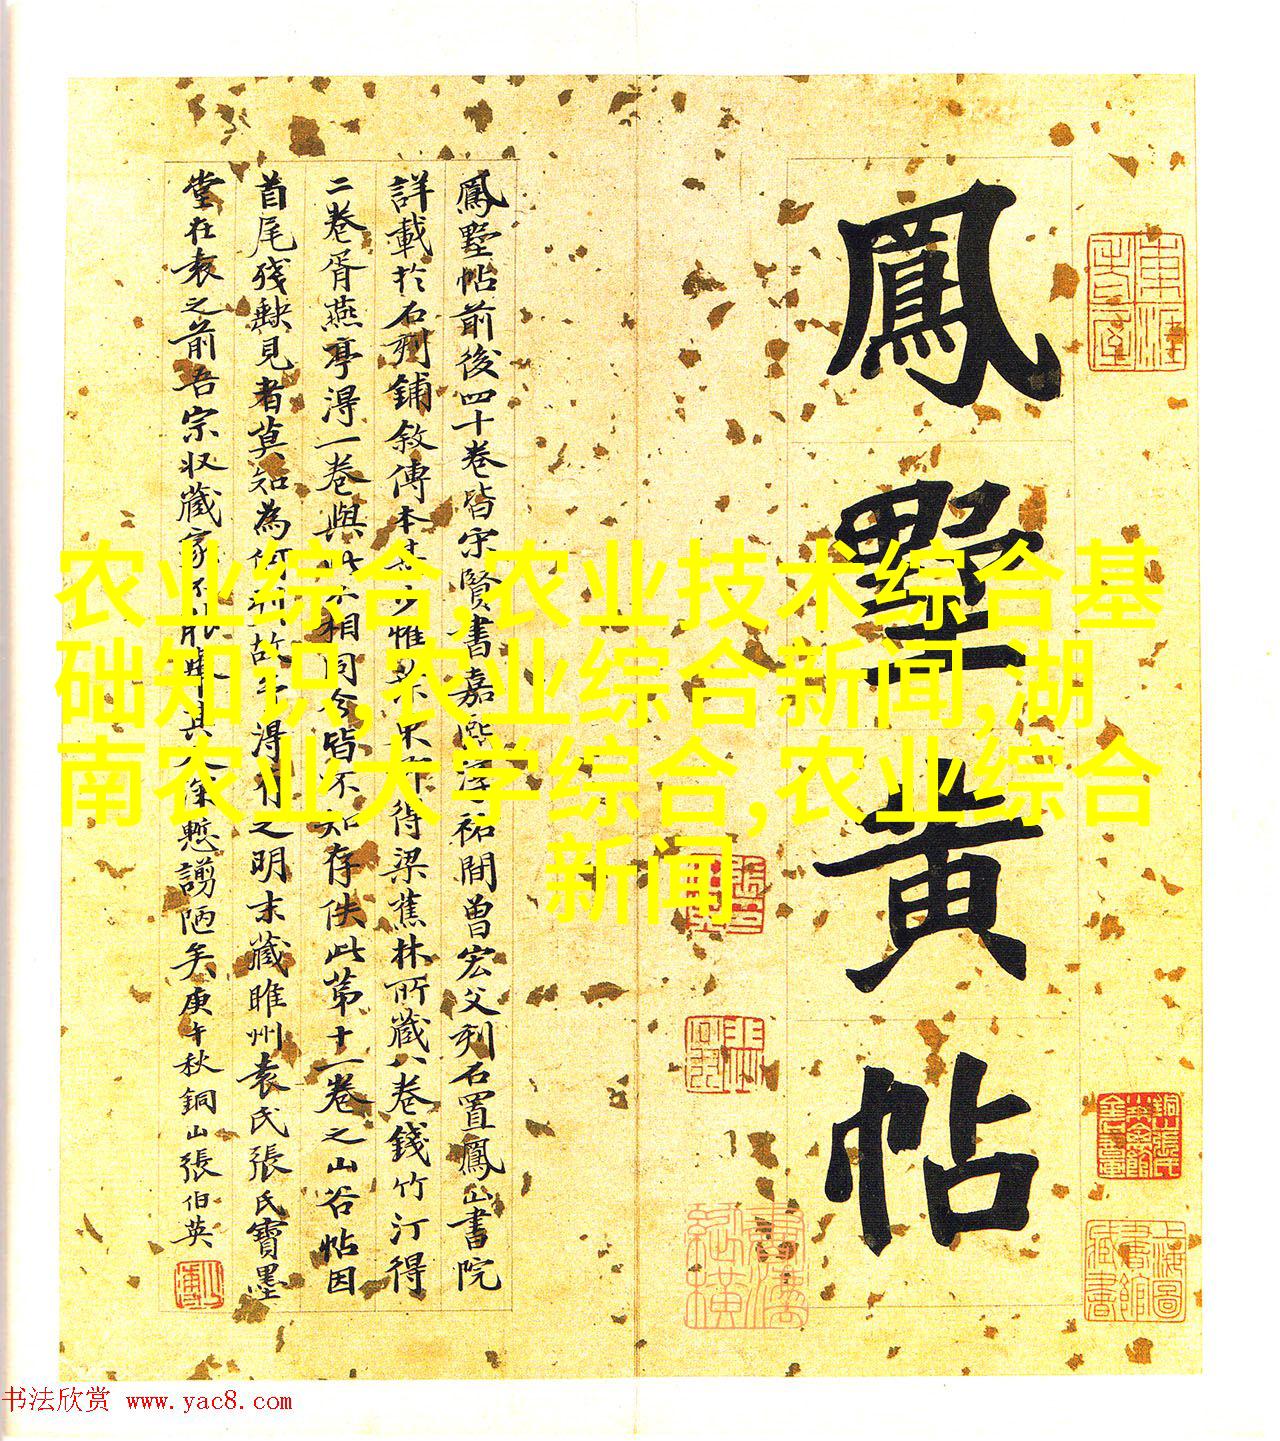 鳳墅黄帖
鳳墅帖前後四十卷皆宋賢書嘉熙淳祐間曾宏父刋石置鳳山書院
詳載於石刻鋪敘傳本甚少惟 得梁蕉林所藏八卷錢竹汀得
二卷胥燕亭淂一卷與此不相同今皆不知存佚此第十一卷之山谷帖因
首尾殘缺見者莫知為何刋故 淂有之明末藏睢州袁氏張氏寶墨
堂在袁之前吾宗収藏家不 其 陋矣庚午秋銅山張伯英
农业综合,农业技术综合基
础知识,农业综合新闻,湖
南农业大学综合,农业综合
新闻
上海圖書館藏書
书法欣赏 www.yac8.com